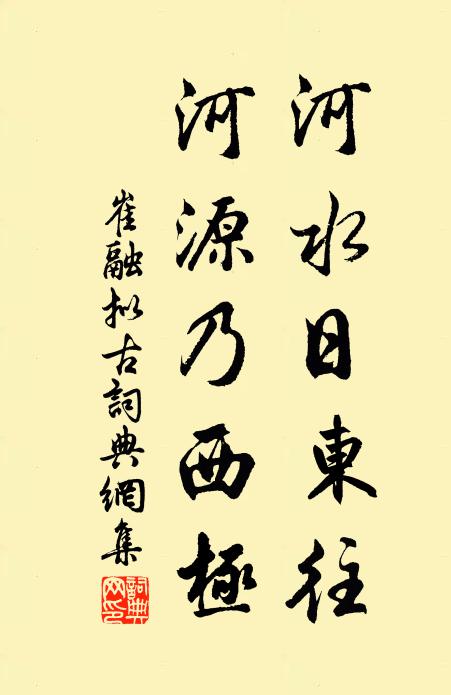 河水日東往
河源乃西極
崔融拟古詞典網集
詞典網印